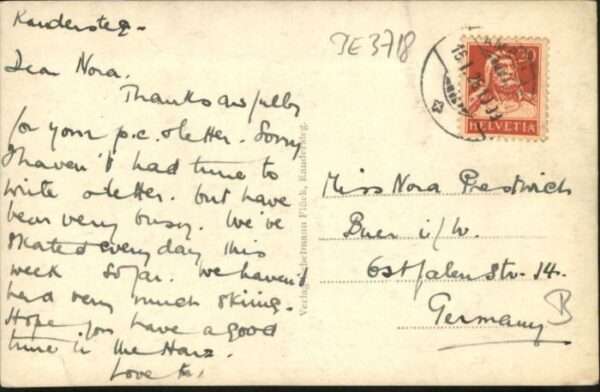 Kandersteg -
Dear Nora.
Thanks awfully
for your p.c. & letter. Sorry
I haven't had time to
write a letter. but have
been very busy. We've
skated every day this
week so far. We haven't
had very much skiing.
Hope you have a good
time in the Harz.
Love
JE 3718
20
HELVETIA
Miss Nora Prestwich
Buer i/W.
Ostfalenstr. 14.
Germany
B
Verlag Flück, Kandersteg.